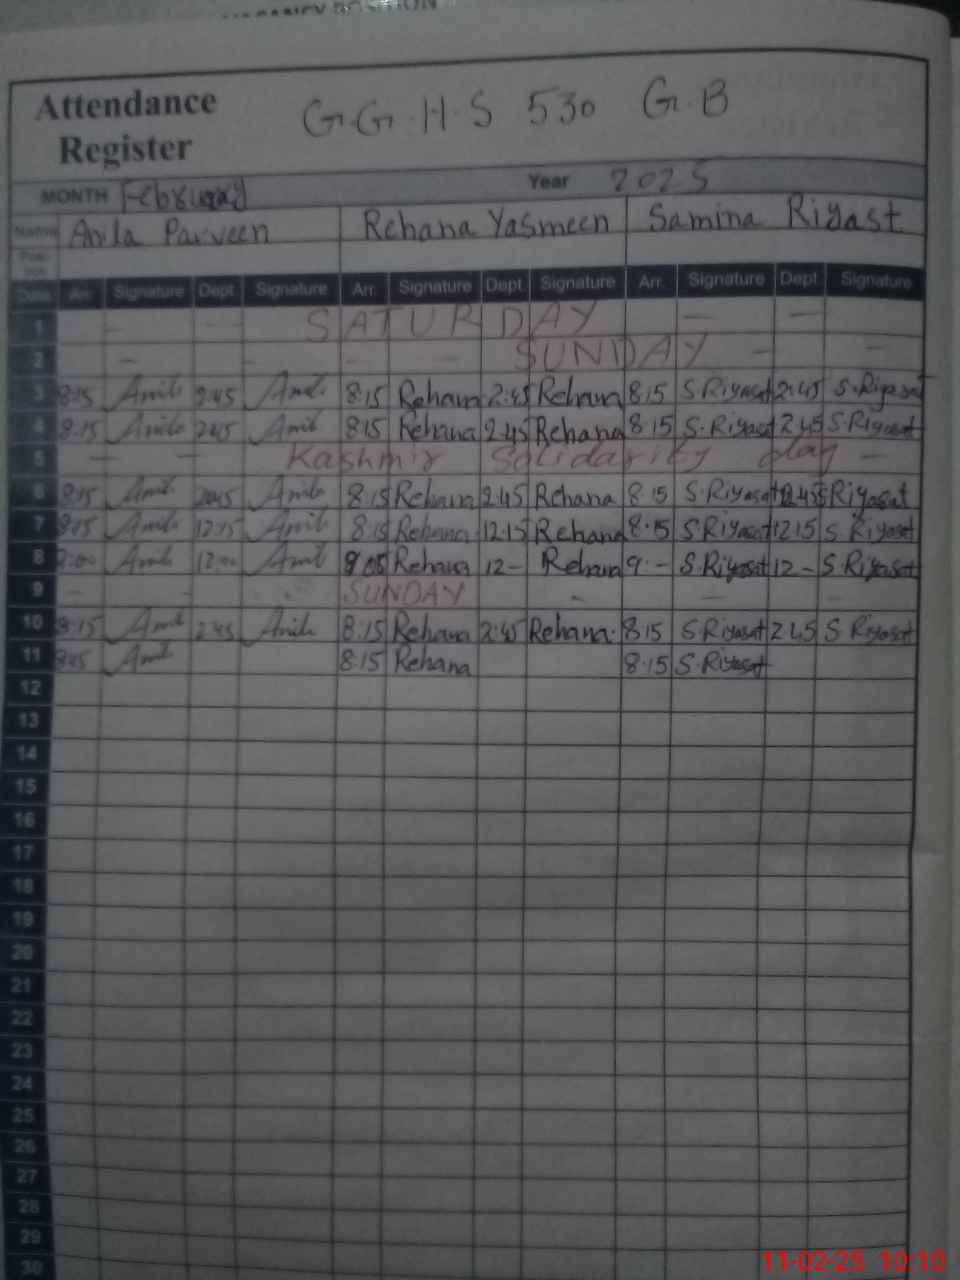 VACANCY POSITION
Attendance
Register
G.G.H.S 530 G.B
MONTH February Year 2025
Name Anila Parveen Rehana Yasmeen Samina Riyast
Date Arr. Signature Dept Signature Arr. Signature Dept. Signature Arr. Signature Dept. Signature
1 - - - SATURDAY - -
2 - - - - SUNDAY - -
3 8:15 Anila 2:45 Anila 8:15 Rehana 2:45 Rehana 8:15 S.Riyasat 2:45 S.Riyasat
4 8:15 Anila 2:45 Anila 8:15 Rehana 2:45 Rehana 8:15 S.Riyasat 2:45 S.Riyasat
5 - - Kashmir Solidarity day -
6 8:15 Anila 2:45 Anila 8:15 Rehana 2:45 Rehana 8:15 S.Riyasat 2:45 S.Riyasat
7 8:15 Anila 12:15 Anila 8:15 Rehana 12:15 Rehana 8:15 S.Riyasat 12:15 S.Riyasat
8 9:00 Anila 12:00 Anila 9:05 Rehana 12- Rehana 9:- S.Riyasat 12- S.Riyasat
9 - - SUNDAY - - -
10 8:15 Anila 2:45 Anila 8:15 Rehana 2:45 Rehana 8:15 S.Riyasat 2:45 S Riyasat
11 8:15 Anila 8:15 Rehana 8:15 S.Riyasat
12
13
14
15
16
17
18
19
20
21
22
23
24
25
26
27
28
29
30
11-02-25 10:10